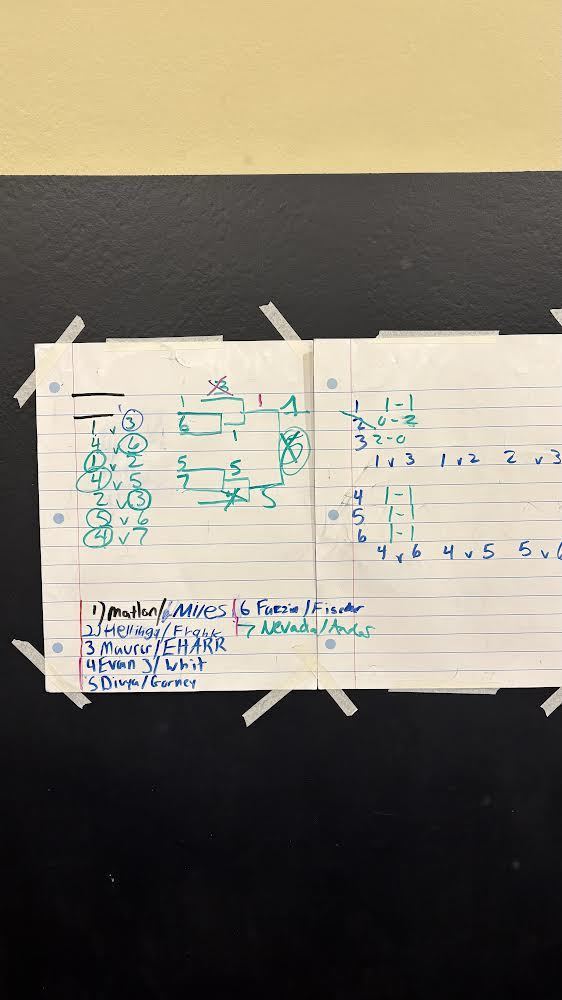 1 v 3
4 v 6
1 v 2
4 v 5
2 v 3
5 v 6
4 v 7
3
1 1 1
6
1
5 5
7
4 5
1 1-1
2 0-2
3 2-0
1 v 3 1 v 2 2 v 3
4 1-1
5 1-1
6 1-1
4 v 6 4 v 5 5 v 6
1) Matlan/Miles
2) Hellinga/
3 Maurer/EHARR
4 Evan J/Whit
5 Divya/Gorney
6 Fuzzin/Fischer
7 Nevada/